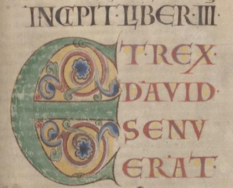 INCIPIT·LIBER·III·
ET REX·
DAVID·
SENV
ERAT·